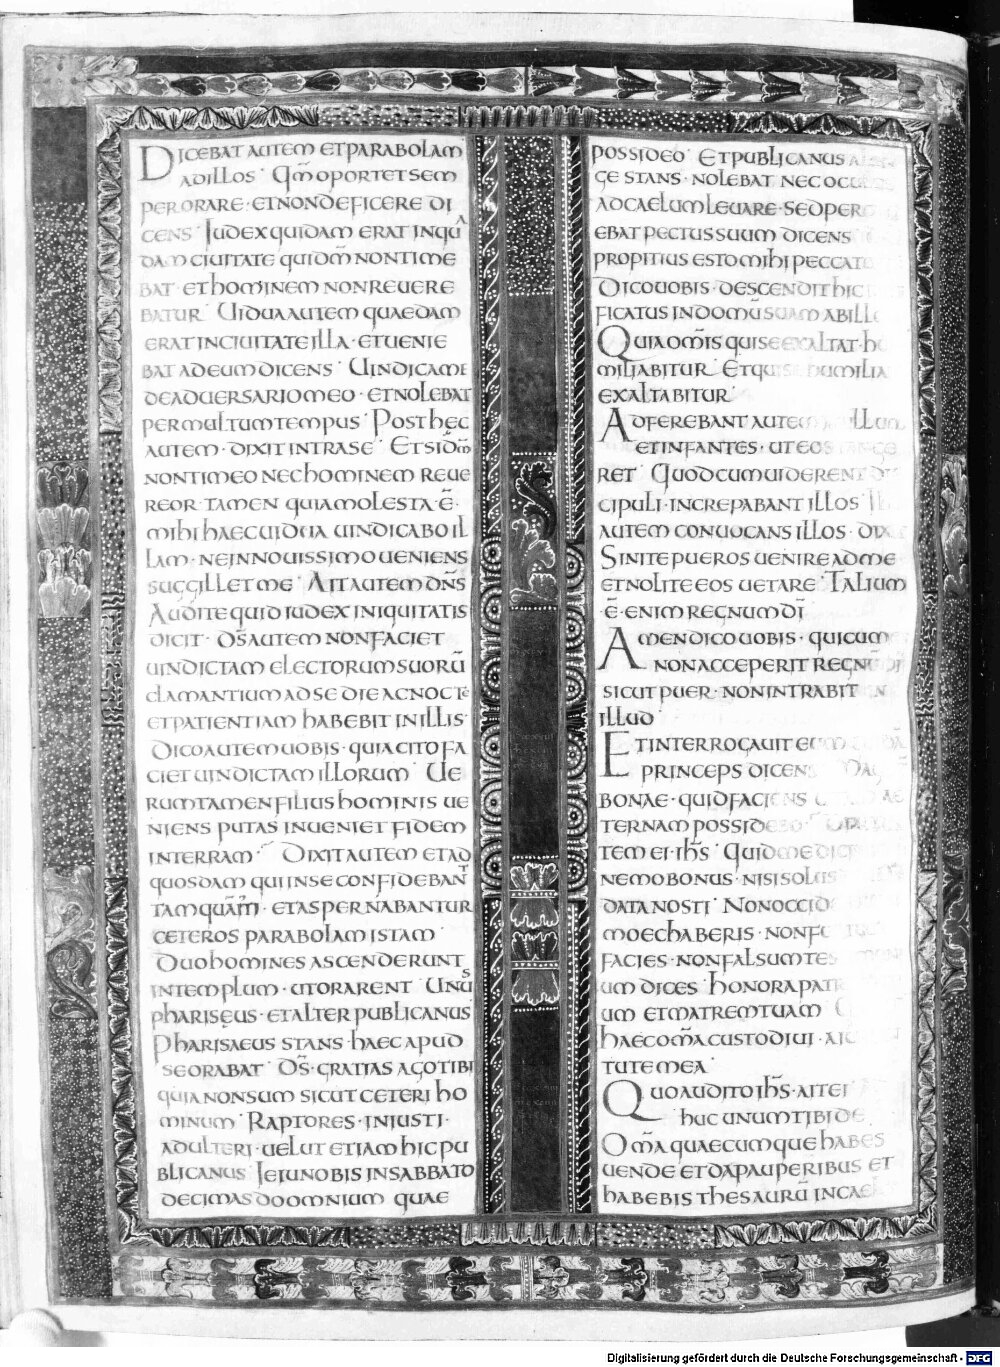 DICEBAT AUTEM ET PARABOLAM
AD ILLOS· Qm̄ OPORTET SEM
PER ORARE· ET NON DEFICERE DI
CENS· IUDEX QUIDAM ERAT IN QUA
DAM CIUITATE QUI Dm̄ NON TIME
BAT· ET HOMINEM NON REUERE
BATUR· UIDUA AUTEM QUAEDAM
ERAT IN CIUITATE ILLA· ET UENIE
BAT AD EUM DICENS· UINDICA ME
DE ADUERSARIO MEO· ET NOLEBAT
PER MULTUM TEMPUS· POST HĘC
AUTEM· DIXIT INTRA SE· ET SI Dm̄
NON TIMEO NEC HOMINEM REUE
REOR· TAMEN QUIA MOLESTA·Ē·
MIHI HAEC UIDUA UINDICABO IL
LAM· NE IN NOUISSIMO UENIENS
SUGGILLET ME· AIT AUTEM DN̄S
AUDITE QUID IUDEX INIQUITATIS
DICIT· DS̄ AUTEM NON FACIET
UINDICTAM ELECTORUM SUORŪ
CLAMANTIUM AD SE DIE AC NOCTE
ET PATIENTIAM HABEBIT IN ILLIS·
DICO AUTEM UOBIS· QUIA CITO FA
CIET UINDICTAM ILLORUM· UE
RUMTAMEN FILIUS HOMINIS UE
NIENS PUTAS INUENIET FIDEM
IN TERRAM· DIXIT AUTEM ET AD
QUOSDAM QUI IN SE CONFIDEBANT
TAMQUAM· ET ASPERNABANTUR
CETEROS PARABOLAM ISTAM
DUO HOMINES ASCENDERUNT
IN TEMPLUM· UT ORARENT· UNUS
PHARISĘUS· ET ALTER PUBLICANUS
PHARISAEUS STANS· HAEC APUD
SE ORABAT· DS̄· GRATIAS AGO TIBI
QUIA NON SUM SICUT CETERI HO
MINUM· RAPTORES· INJUSTI·
ADULTERI· UELUT ETIAM HIC PU
BLICANUS· IEIUNO BIS IN SABBATO
DECIMAS DO OMNIUM QUAE
POSSIDEO· ET PUBLICANUS A
GE STANS· NOLEBAT NEC OCU
AD CAELUM LEUARE· SED PERC
EBAT PECTUS SUUM DICENS
PROPITIUS ESTO MIHI PECCATO
DICO UOBIS· DESCENDIT HIC
FICATUS IN DOMŪ SUAM AB ILLO
QUIA OMS̄ QUI SE EXALTAT· HU
MILIABITUR· ET QUI SE HUMILIA
EXALTABITUR·
ADFEREBANT AUTEM ILLUM
ET INFANTES· UT EOS TANGE
RET· QUOD CUM UIDERENT DIS
CIPULI· INCREPABANT ILLOS·
AUTEM CONUOCANS ILLOS· DIX
SINITE PUEROS UENIRE AD ME
ET NOLITE EOS UETARE· TALIUM
Ē· ENIM REGNUM DĪ
AMEN DICO UOBIS· QUICUM
NON ACCEPERIT REGNŪ DĪ
SICUT PUER· NON INTRABIT IN
ILLUD
ET INTERROGAUIT EUM QUIDĀ
PRINCEPS DICENS MAG
BONAE· QUID FACIENS AE
TERNAM POSSIDEBO·
TEM EI· IHS̄· QUID ME DICIS
NEMO BONUS· NISI SOLUS
DATA NOSTI· NON OCCID
MOECHABERIS· NON FU
FACIES· NON FALSUM TES
UM DICES· HONORA PATR
UM ET MATREM TUAM·
HAEC OMA̅ CUSTODIUI· A IU
TUTE MEA·
QUO AUDITO IHS̄· AIT EI
HUC UNUM TIBI DE
OMA̅ QUAECUMQUE HABES
UENDE ET DA PAUPERIBUS ET
HABEBIS THESAURŪ IN CAE
Digitalisierung gefördert durch die Deutsche Forschungsgemeinschaft - DFG